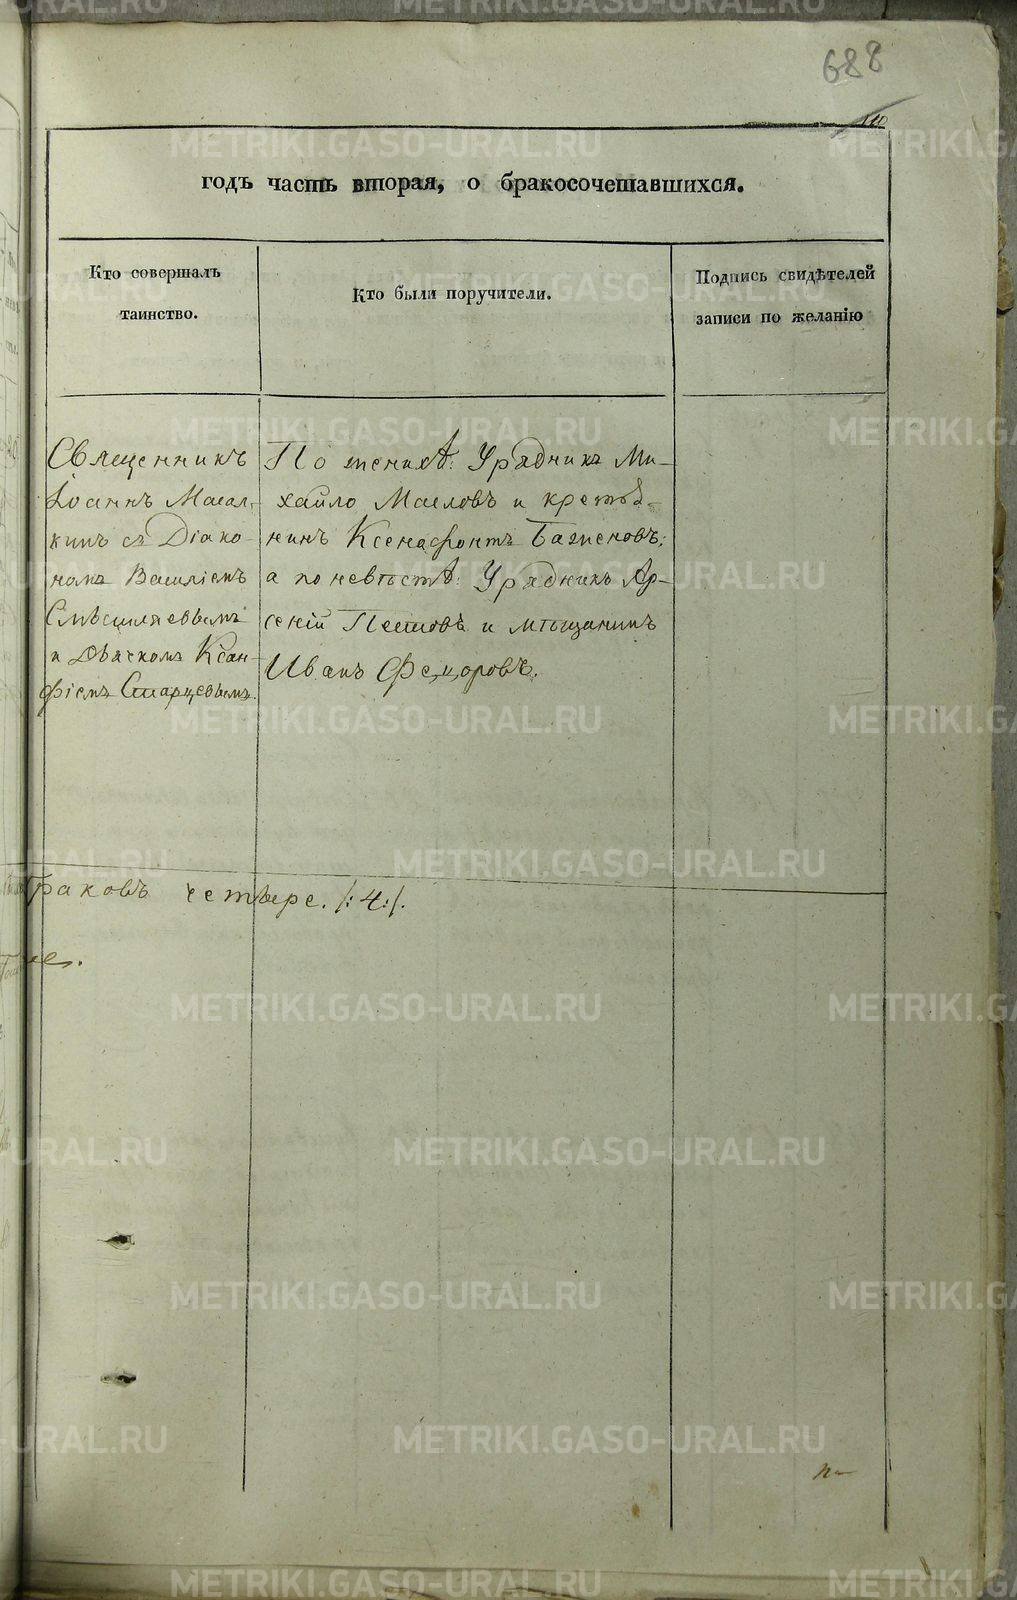 688
годъ часть вторая, о бракосочетавшихся.
Кто совершалъ
таинство.
Кто были поручители.
Подпись свидѣтелей
записи по желанію
Священникъ
Іоаннъ Масал-
кинъ съ Діако-
номъ Василіемъ
и Дьячкомъ Ксан-
фіемъ Старцевымъ.
По женихѣ: Урядникъ Ми-
хайло Масловъ и кресть-
нинъ Ксенофонтъ Баженовъ;
а по невѣстѣ: Урядникъ Ар-
сеній Пешовъ и мѣщанинъ
Иванъ Федоровъ.
браковъ четыре. /:4:/.
METRIKI.GASO-URAL.RU